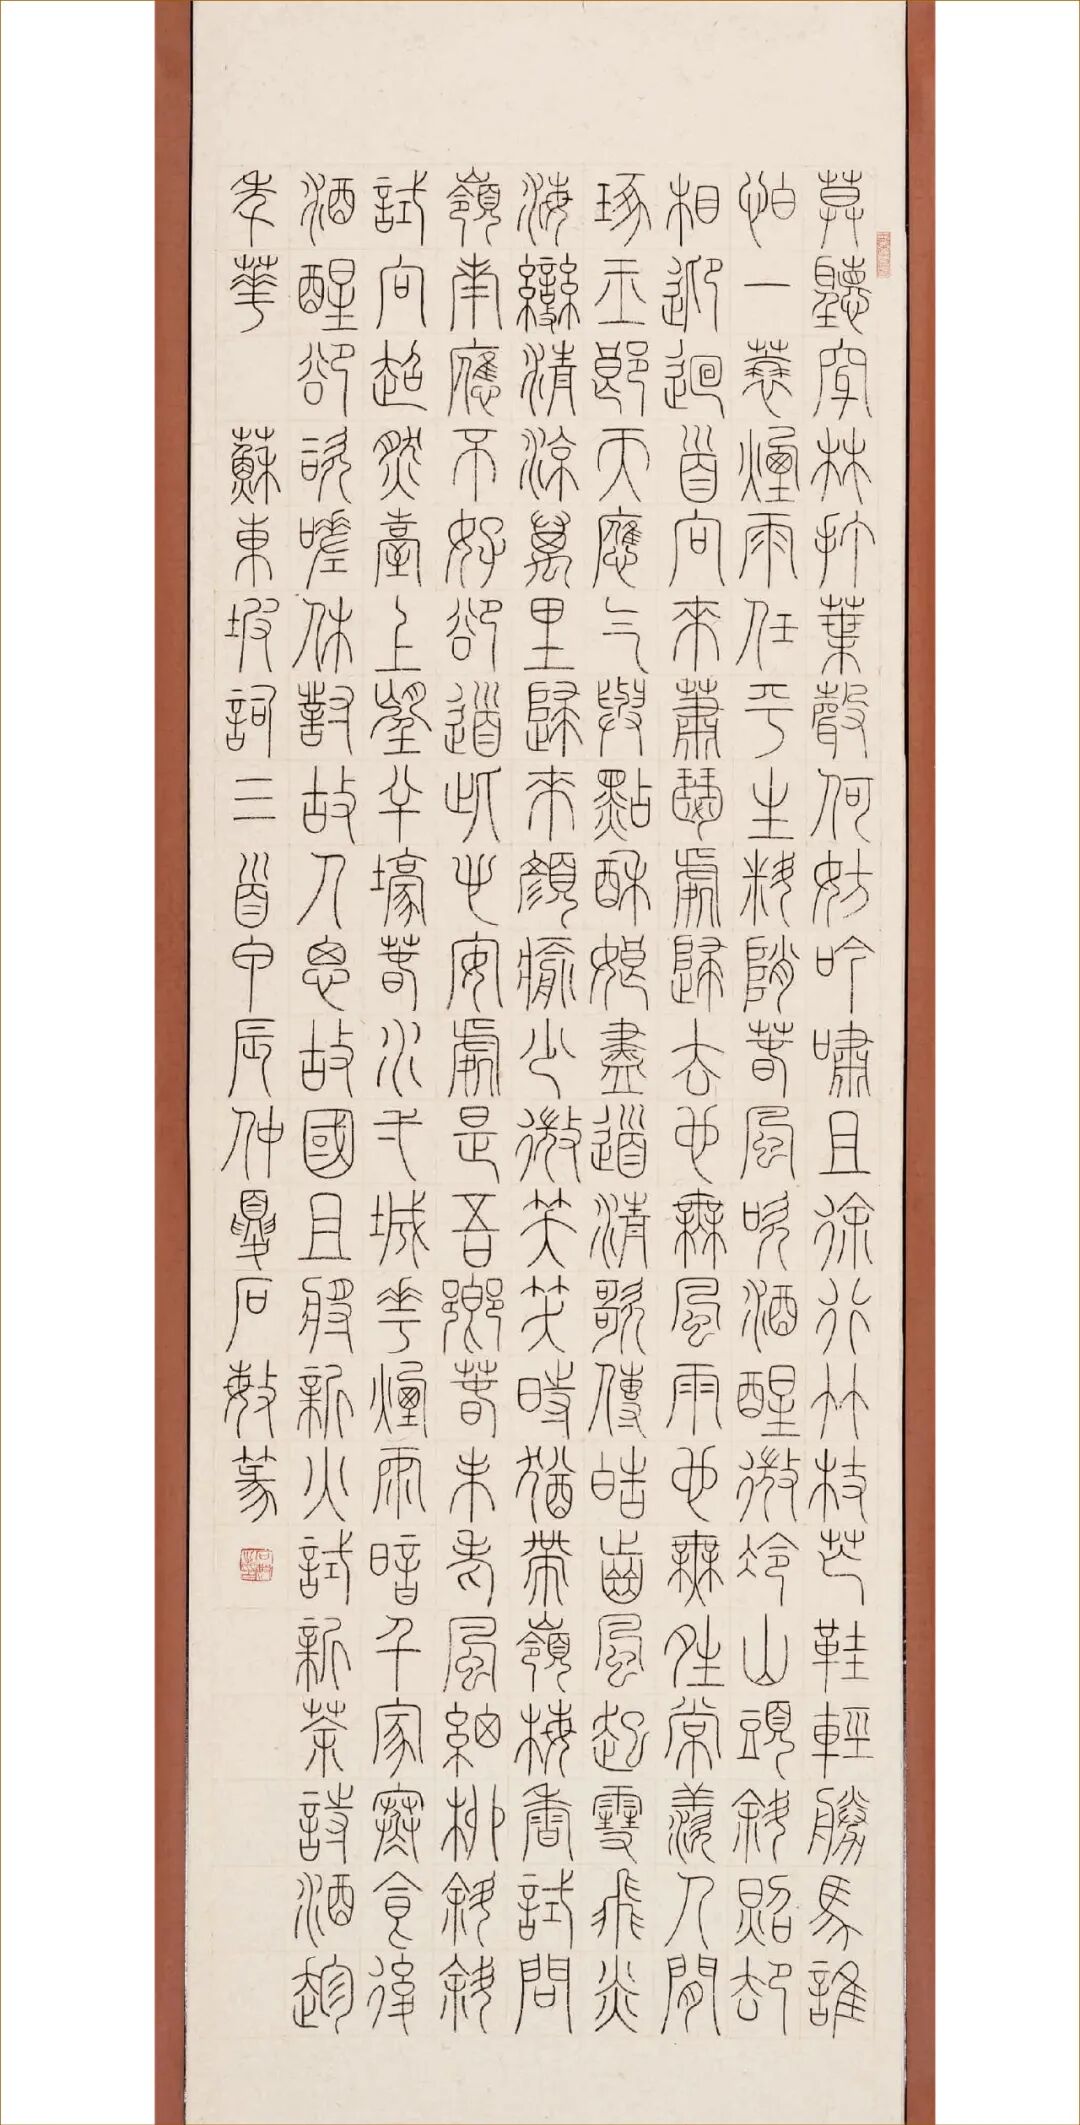 莫聽穿林打葉聲何妨吟嘯且徐行竹杖芒鞋輕勝馬誰
怕一蓑煙雨任平生料陗春風吹酒醒微冷山頭斜照却
相迎迴首向來蕭瑟處歸去也無風雨也無晴常羨人間
琢玉郎天應乞與點酥娘盡道清歌傳皓齒風起雪飛炎
海變清涼萬里歸來顏愈少微笑笑時猶帶嶺梅香試問
嶺南應不好卻道此心安處是吾鄉春未老風細柳斜斜
試向超然臺上望半壕春水弌城花煙雨暗千家寒食後
酒醒卻咨嗟休對故人思故國且將新火試新茶詩酒趁
年華 蘇東坡詞三首甲辰仲夏石敏篆